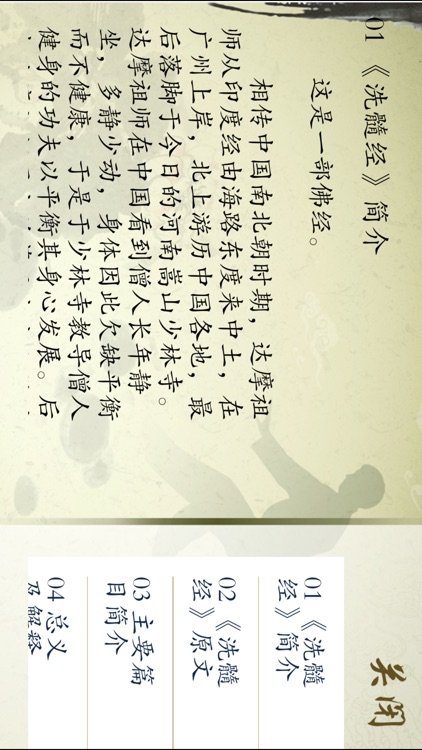 01 《洗髓经》简介
这是一部佛经。
相传中国南北朝时期，达摩祖
师从印度经由海路东度来中土，在
广州上岸，北上游历中国各地，最
后落脚于今日的河南嵩山少林寺。
达摩祖师在中国看到僧人长年静
坐，多静少动，身体因此欠缺平衡
而不健康，于是于少林寺教导僧人
健身的功夫以平衡其身心发展。后
关闭
01《洗髓
经》简介
02《洗髓
经》原文
03 主要篇
目简介
04 总义
及解释